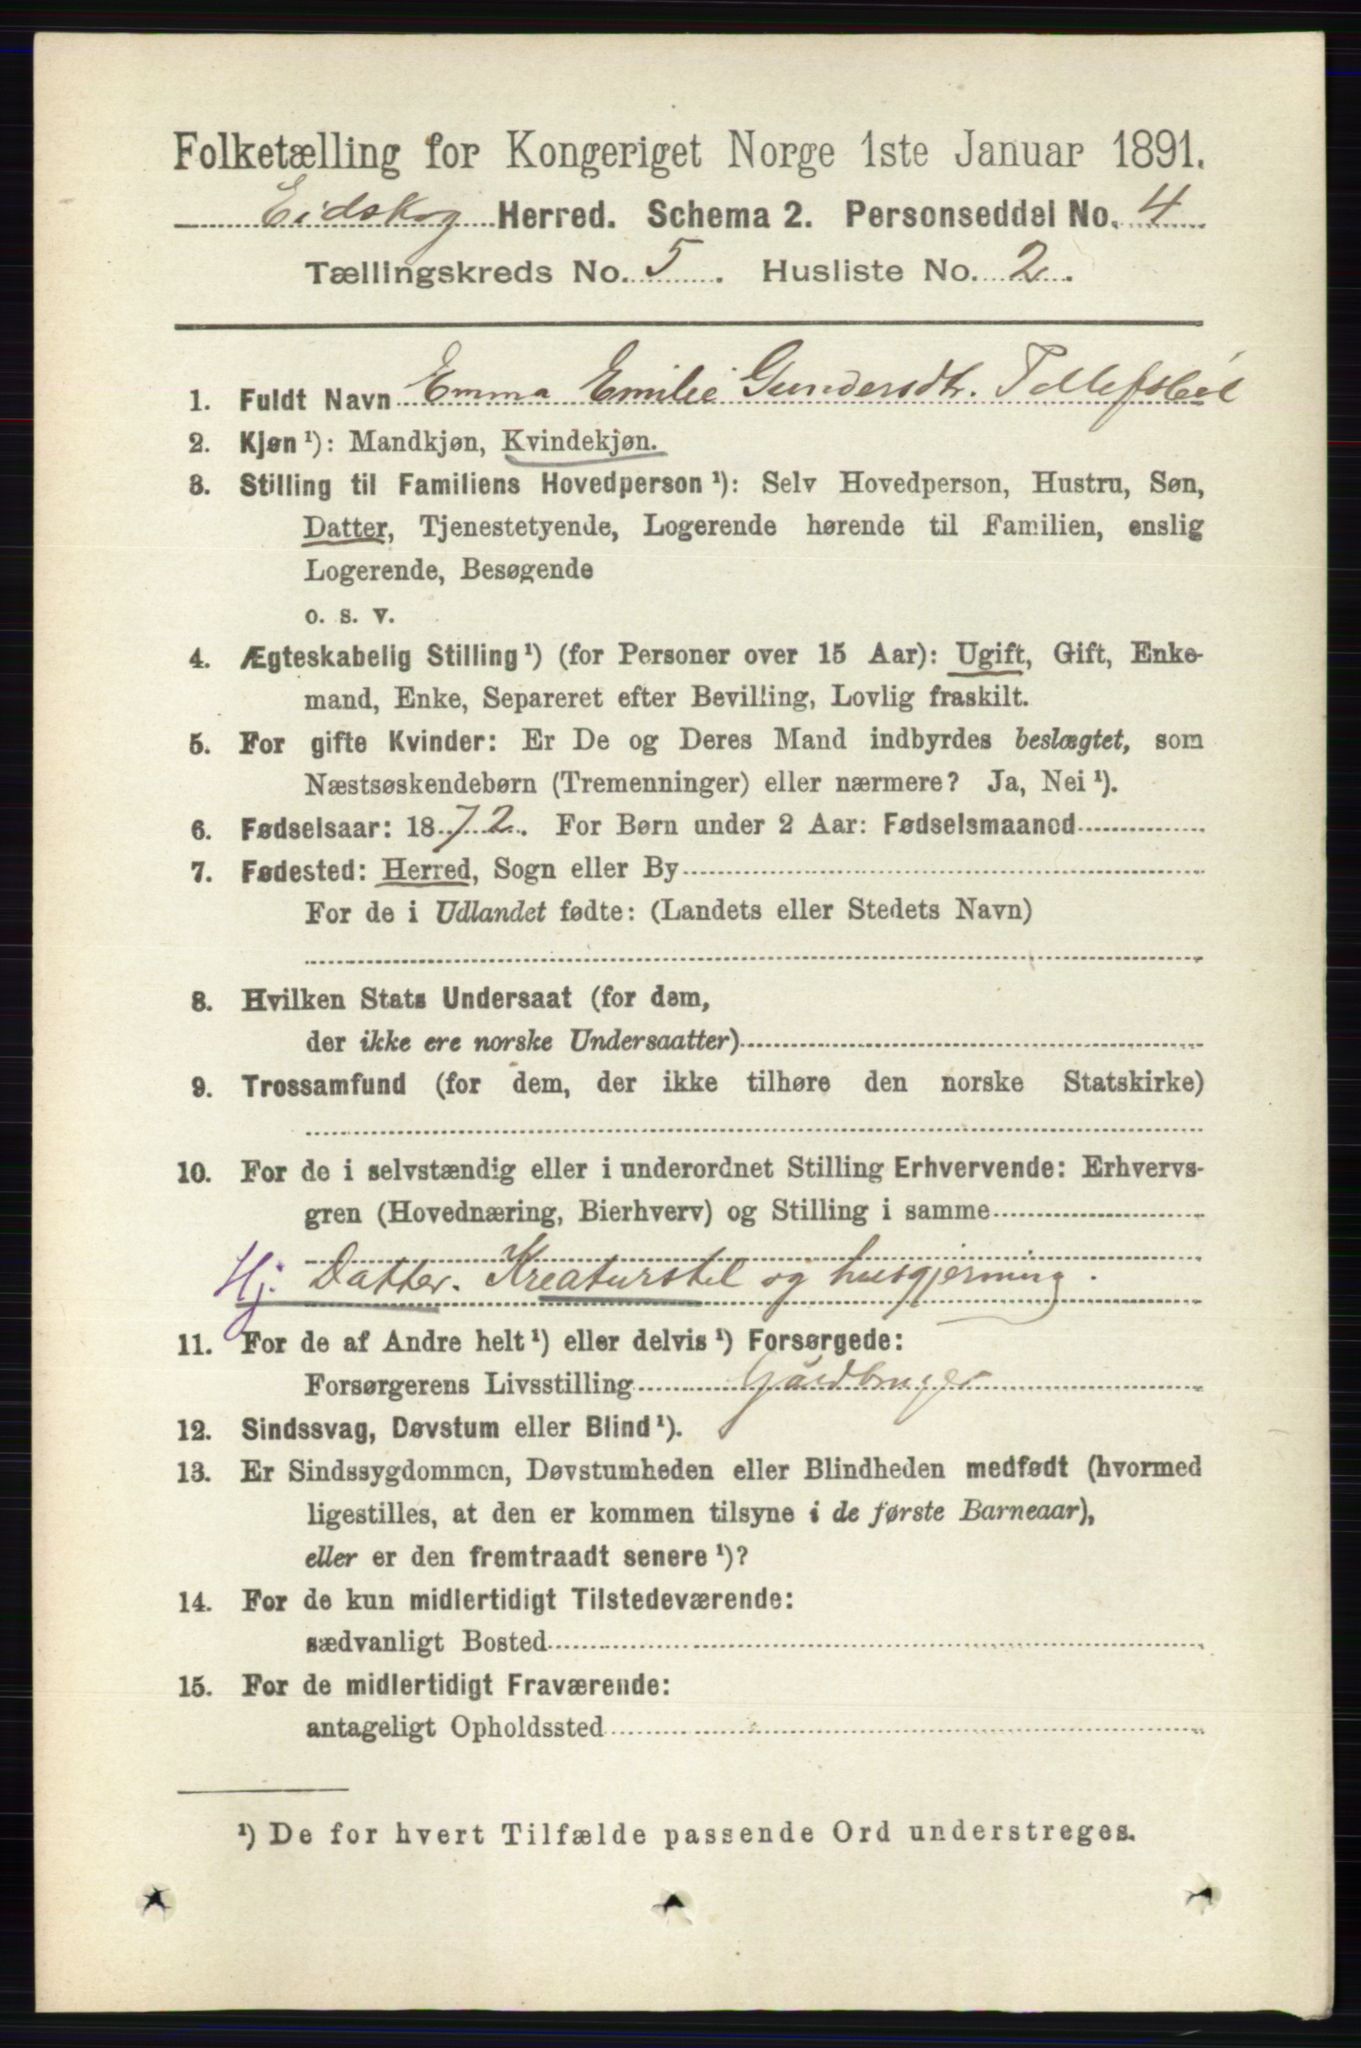 Folketælling for Kongeriget Norge 1ste Januar 1891.
Eidskog Herred. Schema 2. Personseddel No. 4
Tællingskreds No. 5. Husliste No. 2.
1. Fuldt Navn Emma Emilie Gundersdtr. Tollefsbøl
2. Kjøn ¹): Mandkjøn, Kvindekjøn.
3. Stilling til Familiens Hovedperson ¹): Selv Hovedperson, Hustru, Søn,
Datter, Tjenestetyende, Logerende hørende til Familien, enslig
Logerende, Besøgende
o. s. v.
4. Ægteskabelig Stilling ¹) (for Personer over 15 Aar): Ugift, Gift, Enke-
mand, Enke, Separeret efter Bevilling, Lovlig fraskilt.
5. For gifte Kvinder: Er De og Deres Mand indbyrdes beslægtet, som
Næstsøskendebørn (Tremenninger) eller nærmere? Ja, Nei ¹).
6. Fødselsaar: 1872. For Børn under 2 Aar: Fødselsmaaned
7. Fødested: Herred, Sogn eller By
For de i Udlandet fødte: (Landets eller Stedets Navn)
8. Hvilken Stats Undersaat (for dem,
der ikke ere norske Undersaatter)
9. Trossamfund (for dem, der ikke tilhøre den norske Statskirke)
10. For de i selvstændig eller i underordnet Stilling Erhvervende: Erhvervs-
gren (Hovednæring, Bierhverv) og Stilling i samme
Hj. Datter. Kreaturstel og husgjerning.
11. For de af Andre helt ¹) eller delvis ¹) Forsørgede:
Forsørgerens Livsstilling Gårdbruger
12. Sindssvag, Døvstum eller Blind ¹).
13. Er Sindssygdommen, Døvstumheden eller Blindheden medfødt (hvormed
ligestilles, at den er kommen tilsyne i de første Barneaar),
eller er den fremtraadt senere ¹)?
14. For de kun midlertidigt Tilstedeværende:
sædvanligt Bosted
15. For de midlertidigt Fraværende:
antageligt Opholdssted
¹) De for hvert Tilfælde passende Ord understreges.